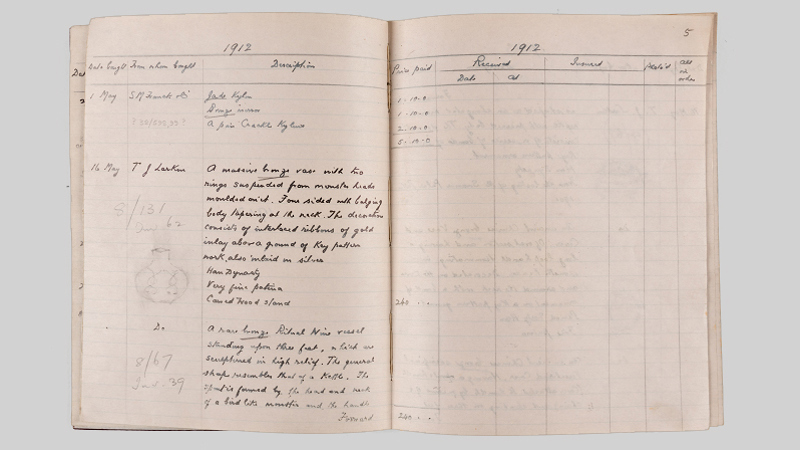 1912
Date bought From whom bought Description
1 May S M Franck & Co
Jade Kylin
Bronze incense
A pair Crackle Kylins
16 May T J Larkin
A massive bronze vase with two
rings suspended from monster heads
moulded on it. Four sided with bulging
body tapering at the neck. The decoration
consists of interlaced ribbons of gold
inlay above a ground of Key pattern
work, also inlaid in silver
Han Dynasty
Very fine patina
Carved Wood stand
8/131
62
Do
A rare bronze Ritual Wine vessel
standing upon three feet, which are
sculptured in high relief. The general
shape resembles that of a Kettle. The
spout is formed by the head and neck
of a bird like monster and the handle
Forward
8/67
39
5
1912
Price paid Received Insured
Date At
1 . 10 . 0
1 . 10 . 0
2 . 10 . 0
5 . 10 . 0
240 . .
240 . .